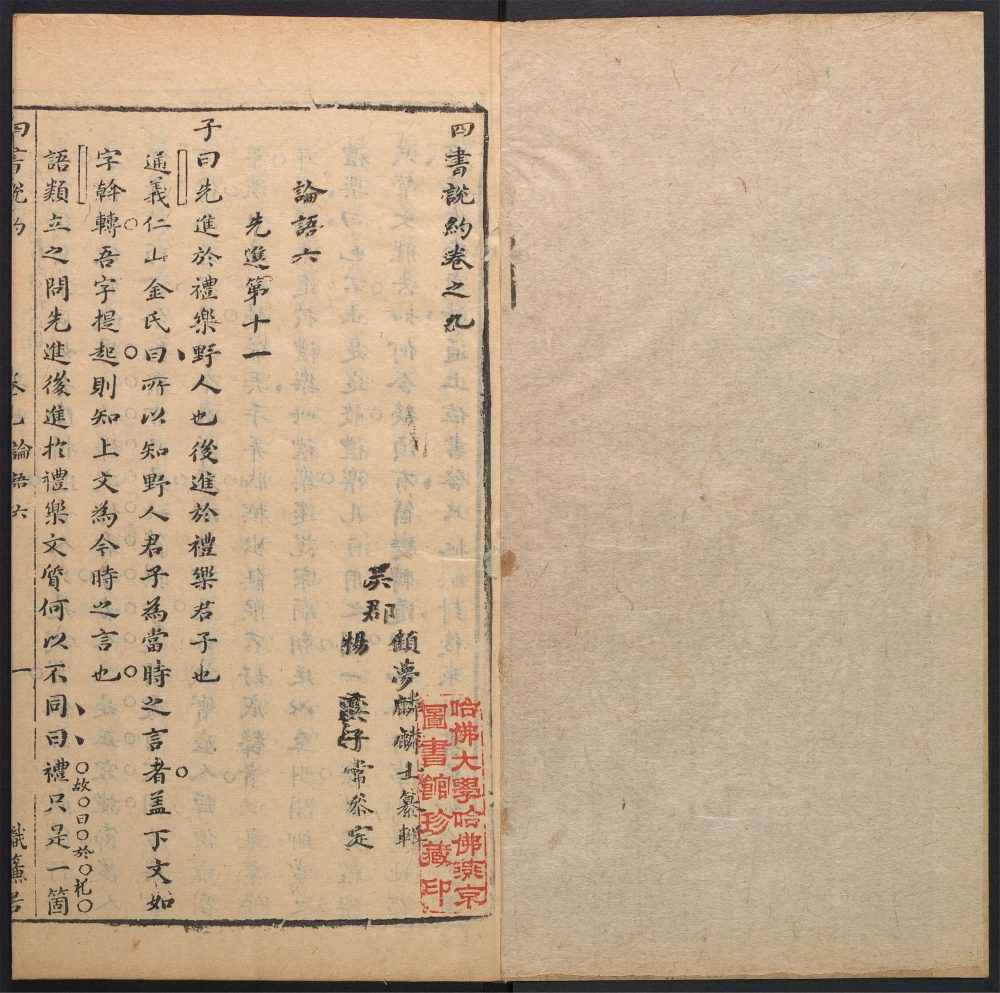 四書說約卷之九
吳郡 顧夢麟麟士纂輯
楊彝子常參定
論語六
先進第十一
子曰先進於禮樂野人也後進於禮樂君子也
通義仁山金氏曰所以知野人君子為當時之言者盖下文如
字斡轉吾字提起則知上文為今時之言也
故曰於礼
語類立之問先進後進扵禮樂文質何以不同曰禮只是一箇
四書說約
卷九論語六
一
織簾居
哈佛大學哈佛燕京
圖書館珍藏印